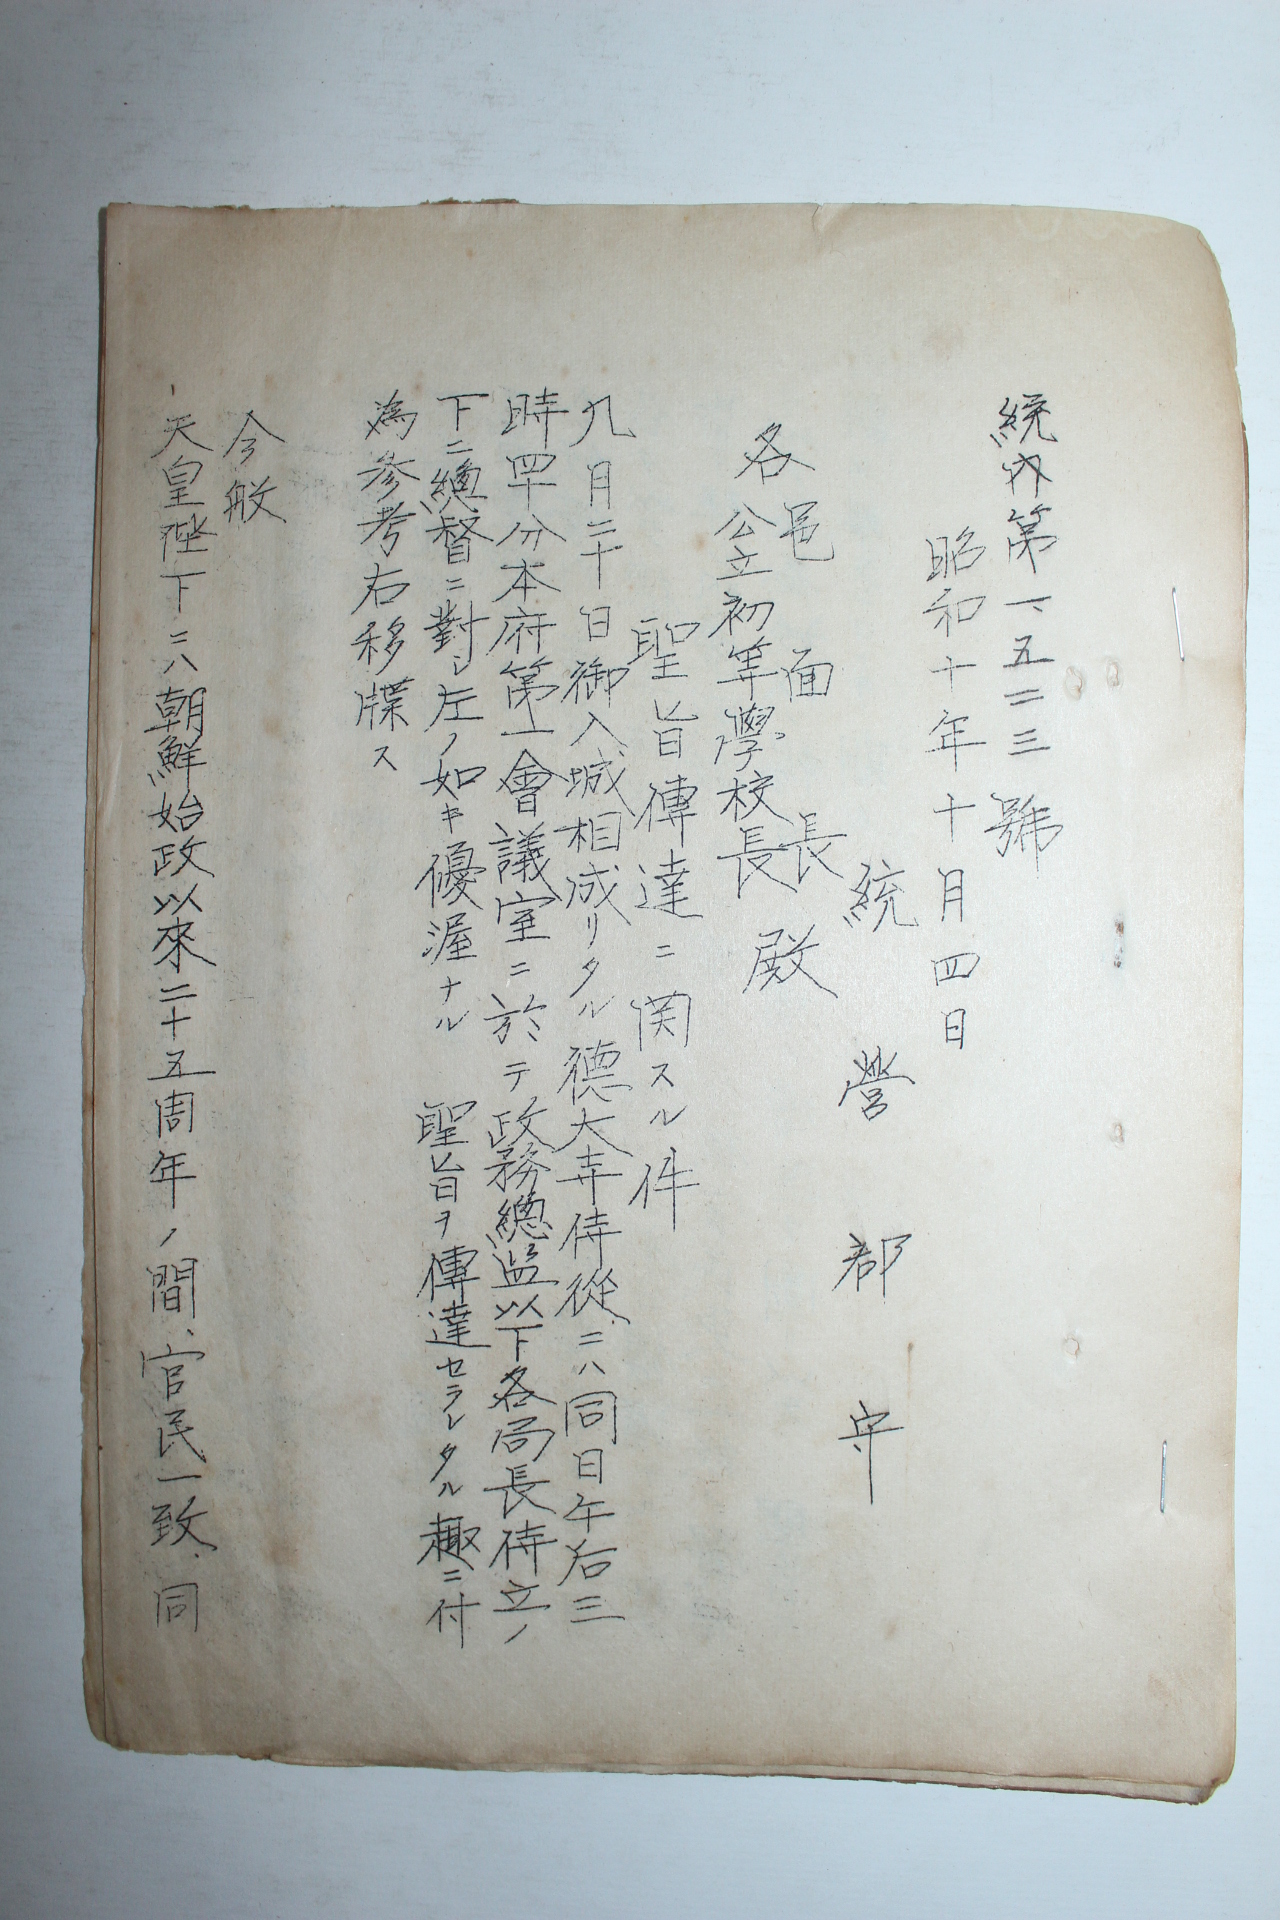 統內第一、五二三號
昭和十年十月四日
統營郡守
各邑面長
公立初等學校長殿
聖旨傳達ニ関スル件
九月二十日御入城相成リタル德大寺侍從ニハ同日午后三
時四十分本府第一會議室ニ於テ政務總監以下各局長侍立ノ
下ニ總督ニ對シ左ノ如キ優渥ナル聖旨ヲ傳達セラレタル趣ニ付
為參考右移牒ス
今般
天皇陛下ニハ朝鮮始政以來二十五周年ノ間、官民一致、同